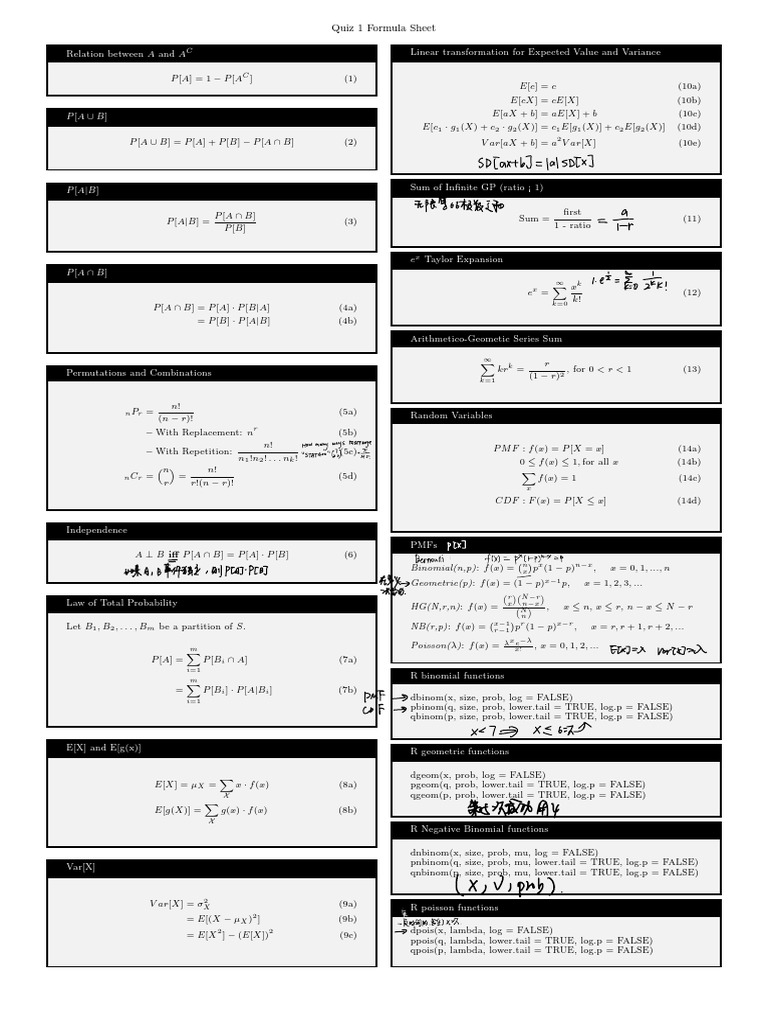 Quiz 1 Formula Sheet
Relation between A and A^C
P[A] = 1 − P[A^C] (1)
P[A ∪ B]
P[A ∪ B] = P[A] + P[B] − P[A ∩ B] (2)
P[A|B]
P[A|B] = P[A ∩ B] / P[B] (3)
P[A ∩ B]
P[A ∩ B] = P[A] · P[B|A] (4a)
= P[B] · P[A|B] (4b)
Permutations and Combinations
nPr = n! / (n − r)! (5a)
− With Replacement: n^r (5b)
− With Repetition: n! / n1!n2! . . . nk! (5c)
How many ways rearrange
nCr = (n r) = n! / r!(n − r)! (5d)
Independence
A ⊥ B iff P[A ∩ B] = P[A] · P[B] (6)
如果A,B事件独立,则P[A]·P[B]
Law of Total Probability
Let B1, B2, . . . , Bm be a partition of S.
P[A] = ∑_{i=1}^{m} P[Bi ∩ A] (7a)
= ∑_{i=1}^{m} P[Bi] · P[A|Bi] (7b)
E[X] and E[g(x)]
E[X] = μX = ∑_X x · f(x) (8a)
E[g(X)] = ∑_X g(x) · f(x) (8b)
Var[X]
Var[X] = σ²_X (9a)
= E[(X − μX)²] (9b)
= E[X²] − (E[X])² (9c)
Linear transformation for Expected Value and Variance
E[c] = c (10a)
E[cX] = cE[X] (10b)
E[aX + b] = aE[X] + b (10c)
E[c1 · g1(X) + c2 · g2(X)] = c1E[g1(X)] + c2E[g2(X)] (10d)
Var[aX + b] = a²Var[X] (10e)
SD[ax+b] = |a| SD[x]
Sum of Infinite GP (ratio ¡ 1)
Sum = first / 1 - ratio = a / 1-r (11)
e^x Taylor Expansion
e^x = ∑_{k=0}^{∞} x^k / k! (12)
Arithmetico-Geometic Series Sum
∑_{k=1}^{∞} kr^k = r / (1 − r)², for 0 < r < 1 (13)
Random Variables
PMF : f(x) = P[X = x] (14a)
0 ≤ f(x) ≤ 1, for all x (14b)
∑_x f(x) = 1 (14c)
CDF : F(x) = P[X ≤ x] (14d)
PMFs P[X]
Binomial(n,p): f(x) = (n x)p^x(1 − p)^{n−x}, x = 0, 1, ..., n
Geometric(p): f(x) = (1 − p)^{x−1}p, x = 1, 2, 3, ...
HG(N,r,n): f(x) = (r x)(N−r n−x) / (N n), x ≤ n, x ≤ r, n − x ≤ N − r
NB(r,p): f(x) = (x−1 r−1)p^r(1 − p)^{x−r}, x = r, r + 1, r + 2, ...
Poisson(λ): f(x) = λ^x e^{−λ} / x!, x = 0, 1, 2, ... E[x]=λ Var[x]=λ
R binomial functions
PMF → dbinom(x, size, prob, log = FALSE)
CDF → pbinom(q, size, prob, lower.tail = TRUE, log.p = FALSE)
qbinom(p, size, prob, lower.tail = TRUE, log.p = FALSE)
X<7 ⇒ X ≤ 6
R geometric functions
dgeom(x, prob, log = FALSE)
pgeom(q, prob, lower.tail = TRUE, log.p = FALSE)
qgeom(p, prob, lower.tail = TRUE, log.p = FALSE)
R Negative Binomial functions
dnbinom(x, size, prob, mu, log = FALSE)
pnbinom(q, size, prob, mu, lower.tail = TRUE, log.p = FALSE)
qnbinom(p, size, prob, mu, lower.tail = TRUE, log.p = FALSE)
(x, r, prob).
R poisson functions
→ dpois(x, lambda, log = FALSE)
ppois(q, lambda, lower.tail = TRUE, log.p = FALSE)
qpois(p, lambda, lower.tail = TRUE, log.p = FALSE)